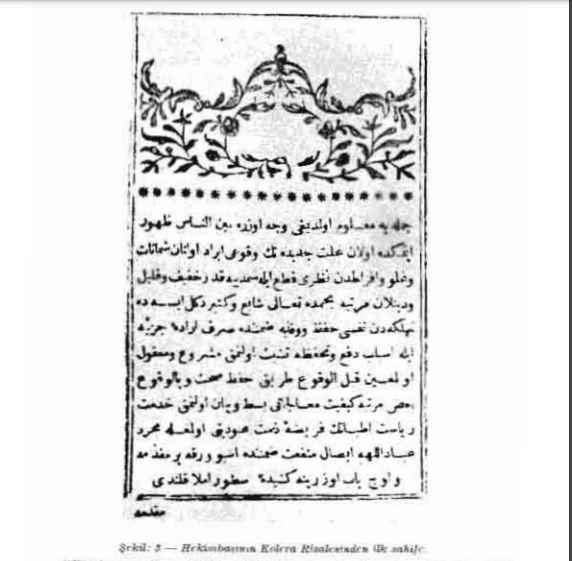 جمله يه معلوم اولديغى وجه اوزره بين الناس ظهور
ايتمكده اولان علت جديده نك وقوعى ايراد اولنان شماتات
وغلو وافراطدن نظرى قطع ايله سمديه قدر خفيف وقليل
ودينلان مرتبه بحمده تعالى شايع وكثير دكل ايسه ده
مهلكه دن نفسى حفظ ووقايه ضمننده صرف اراده جزئيه
ايله اسباب دفع وتحفظه تشبث اولنمق مشروع ومعقول
اولمغين قبل الوقوع طريق حفظ صحت وبالوقوع
بعض مرتبه كيفيت معالجاتى بسط وبيان اولنمق خدمت
رياست اطبانك فريضه ذمت عبوديتى اولمغله مجرد
عباداللهه ايصال منفعت ضمننده اشبو ورقه بر مقدمه
واوچ باب اوزرينه كشيده سطور املا قلندى
مقدمه
Şekil: 5 — Hekimbaşının Kolera Risalesinden ilk sahife.